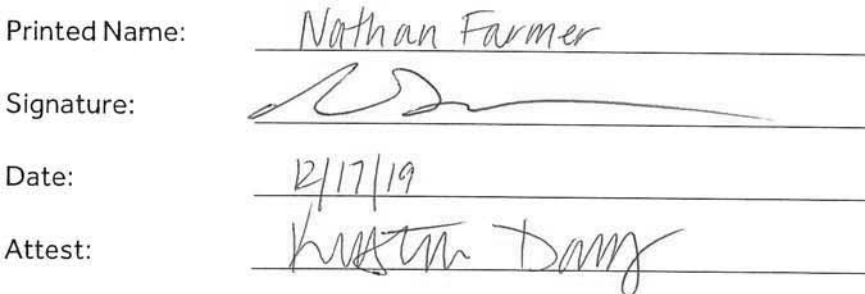 Printed Name: Nathan Farmer
Signature:
Date: 12/17/19
Attest: Kristin